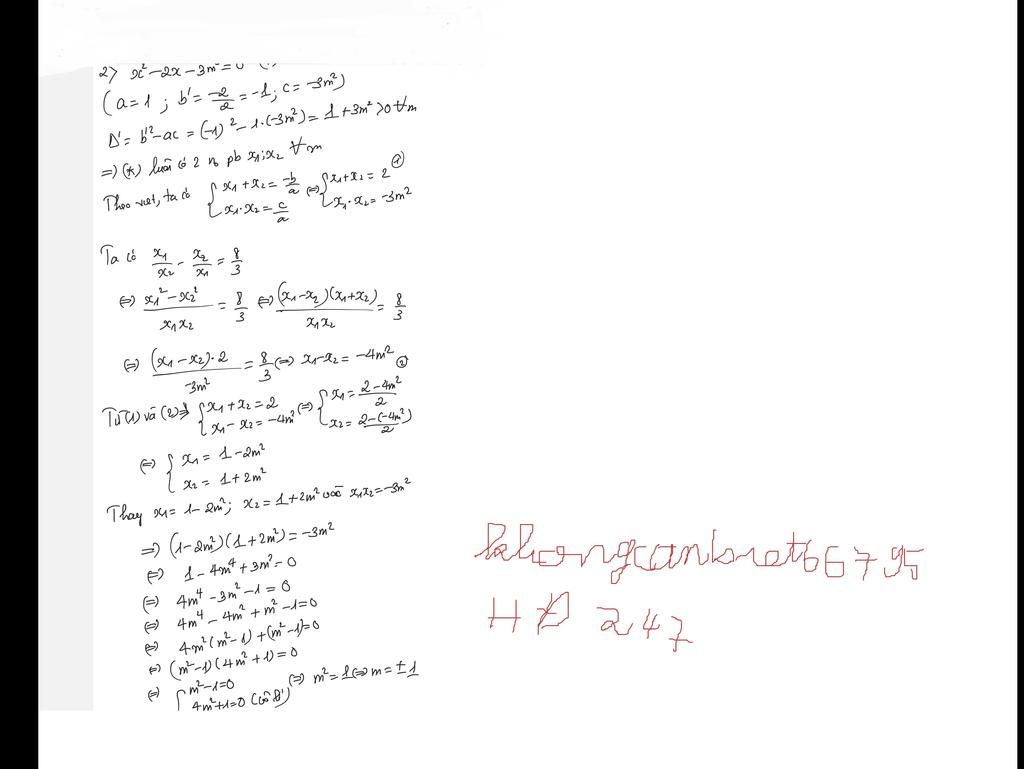 2> x² - 2x - 3m² = 0
(a = 1 ; b' = -2/2 = -1 ; c = -3m²)
Δ' = b'² - ac = (-1)² - 1.(-3m²) = 1 + 3m² > 0 ∀m
=> (*) luôn có 2 n₀ pb x₁; x₂ ∀m
Theo viet, ta có { x₁ + x₂ = -b/a ; x₁.x₂ = c/a <=> { x₁ + x₂ = 2 (1) ; x₁.x₂ = -3m²
Ta có x₁/x₂ - x₂/x₁ = 8/3
<=> (x₁² - x₂²)/(x₁x₂) = 8/3 <=> (x₁ - x₂)(x₁ + x₂)/(x₁x₂) = 8/3
<=> (x₁ - x₂).2/(-3m²) = 8/3 <=> x₁ - x₂ = -4m² (2)
Từ (1) và (2) => { x₁ + x₂ = 2 ; x₁ - x₂ = -4m² <=> { x₁ = (2 - 4m²)/2 ; x₂ = (2 - (-4m²))/2
<=> { x₁ = 1 - 2m²
x₂ = 1 + 2m²
Thay x₁ = 1 - 2m²; x₂ = 1 + 2m² vào x₁x₂ = -3m²
=> (1 - 2m²)(1 + 2m²) = -3m²
<=> 1 - 4m⁴ + 3m² = 0
<=> 4m⁴ - 3m² - 1 = 0
<=> 4m⁴ - 4m² + m² - 1 = 0
<=> 4m²(m² - 1) + (m² - 1) = 0
<=> (m² - 1)(4m² + 1) = 0
<=> [ m² - 1 = 0 <=> m² = 1 <=> m = ± 1
4m² + 1 = 0 (vô lí)
khongcanbiet66795
HĐ 247